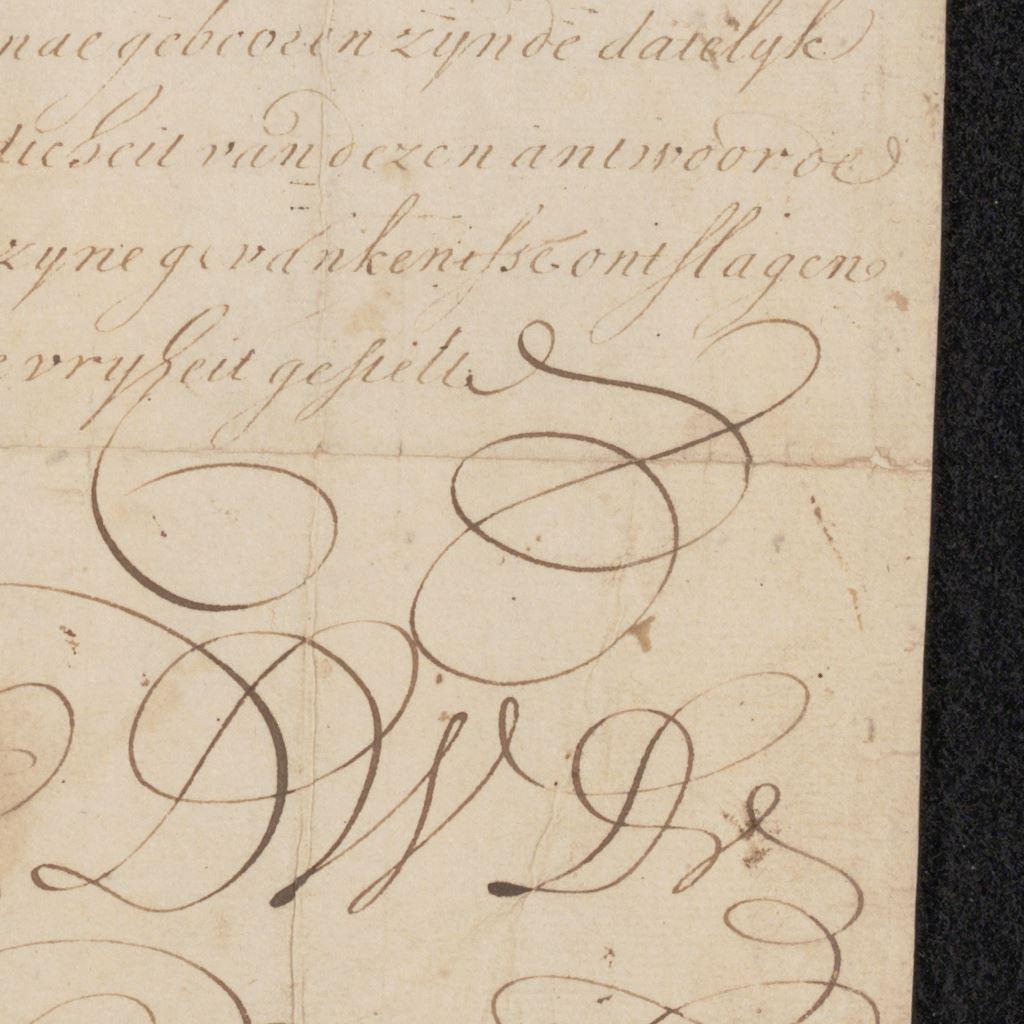 nae gebooren zynde datelyk
dicheit van dezen antwoorde
zyne gevankenisse ontslagen
e vryheit gestelt.
DW Dr